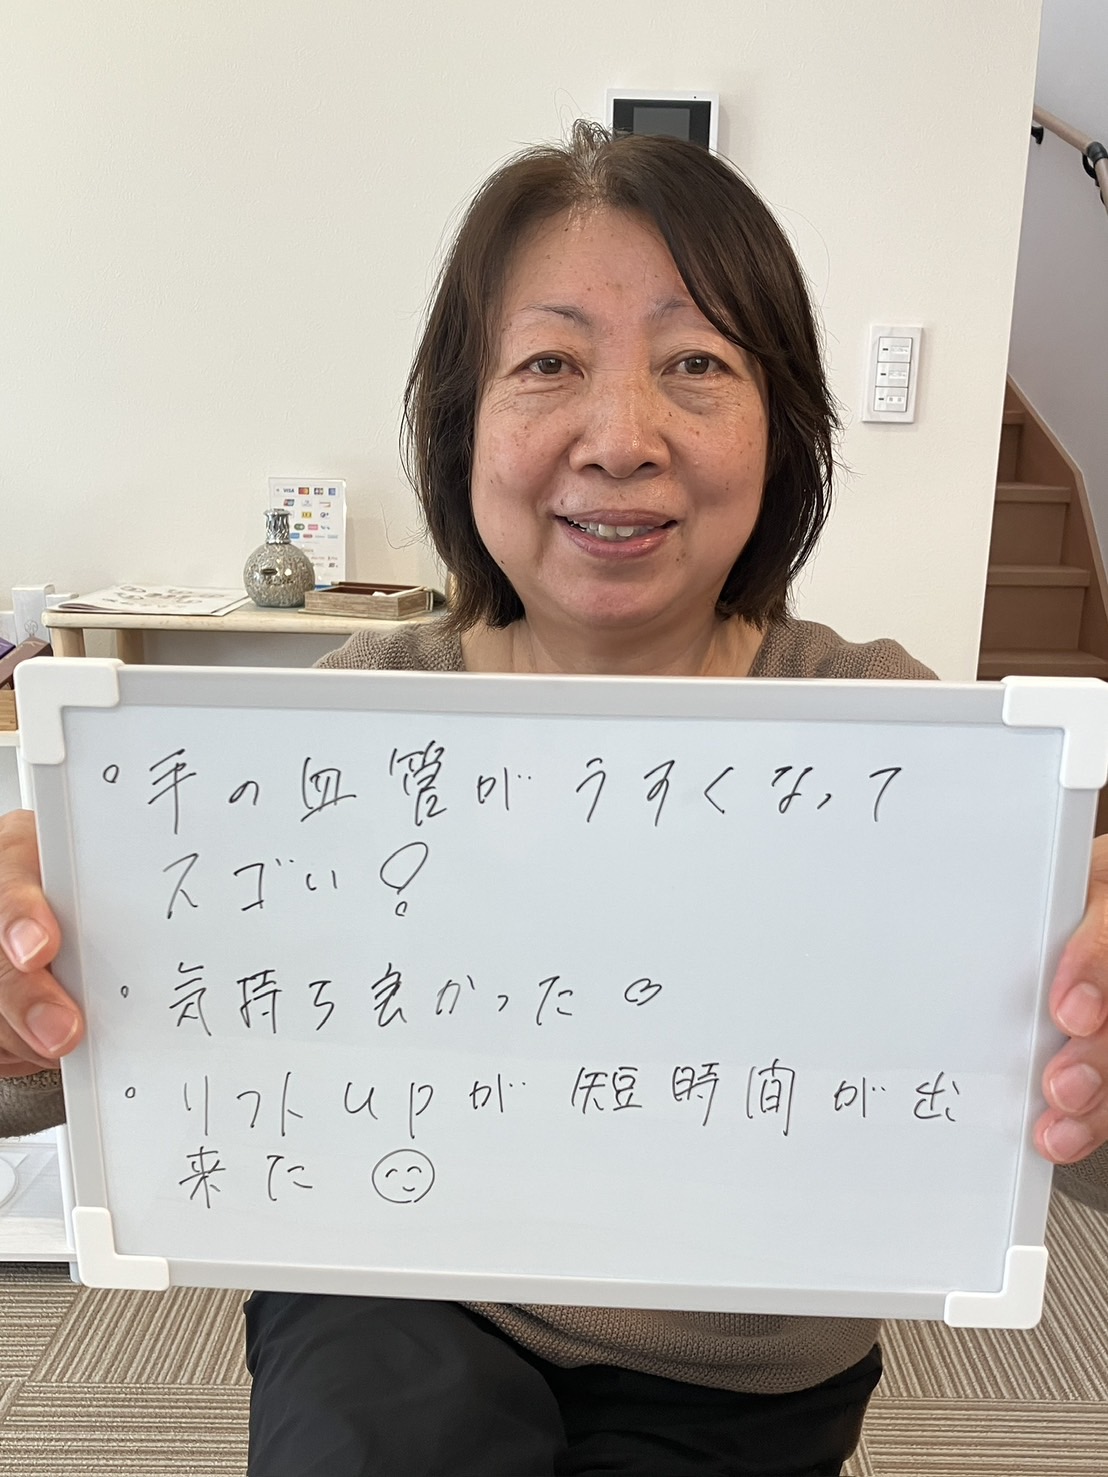 ・手の血管がうすくなって
スゴい!
・気持ち良かった
・リフトupが短時間が出
来た
VISA